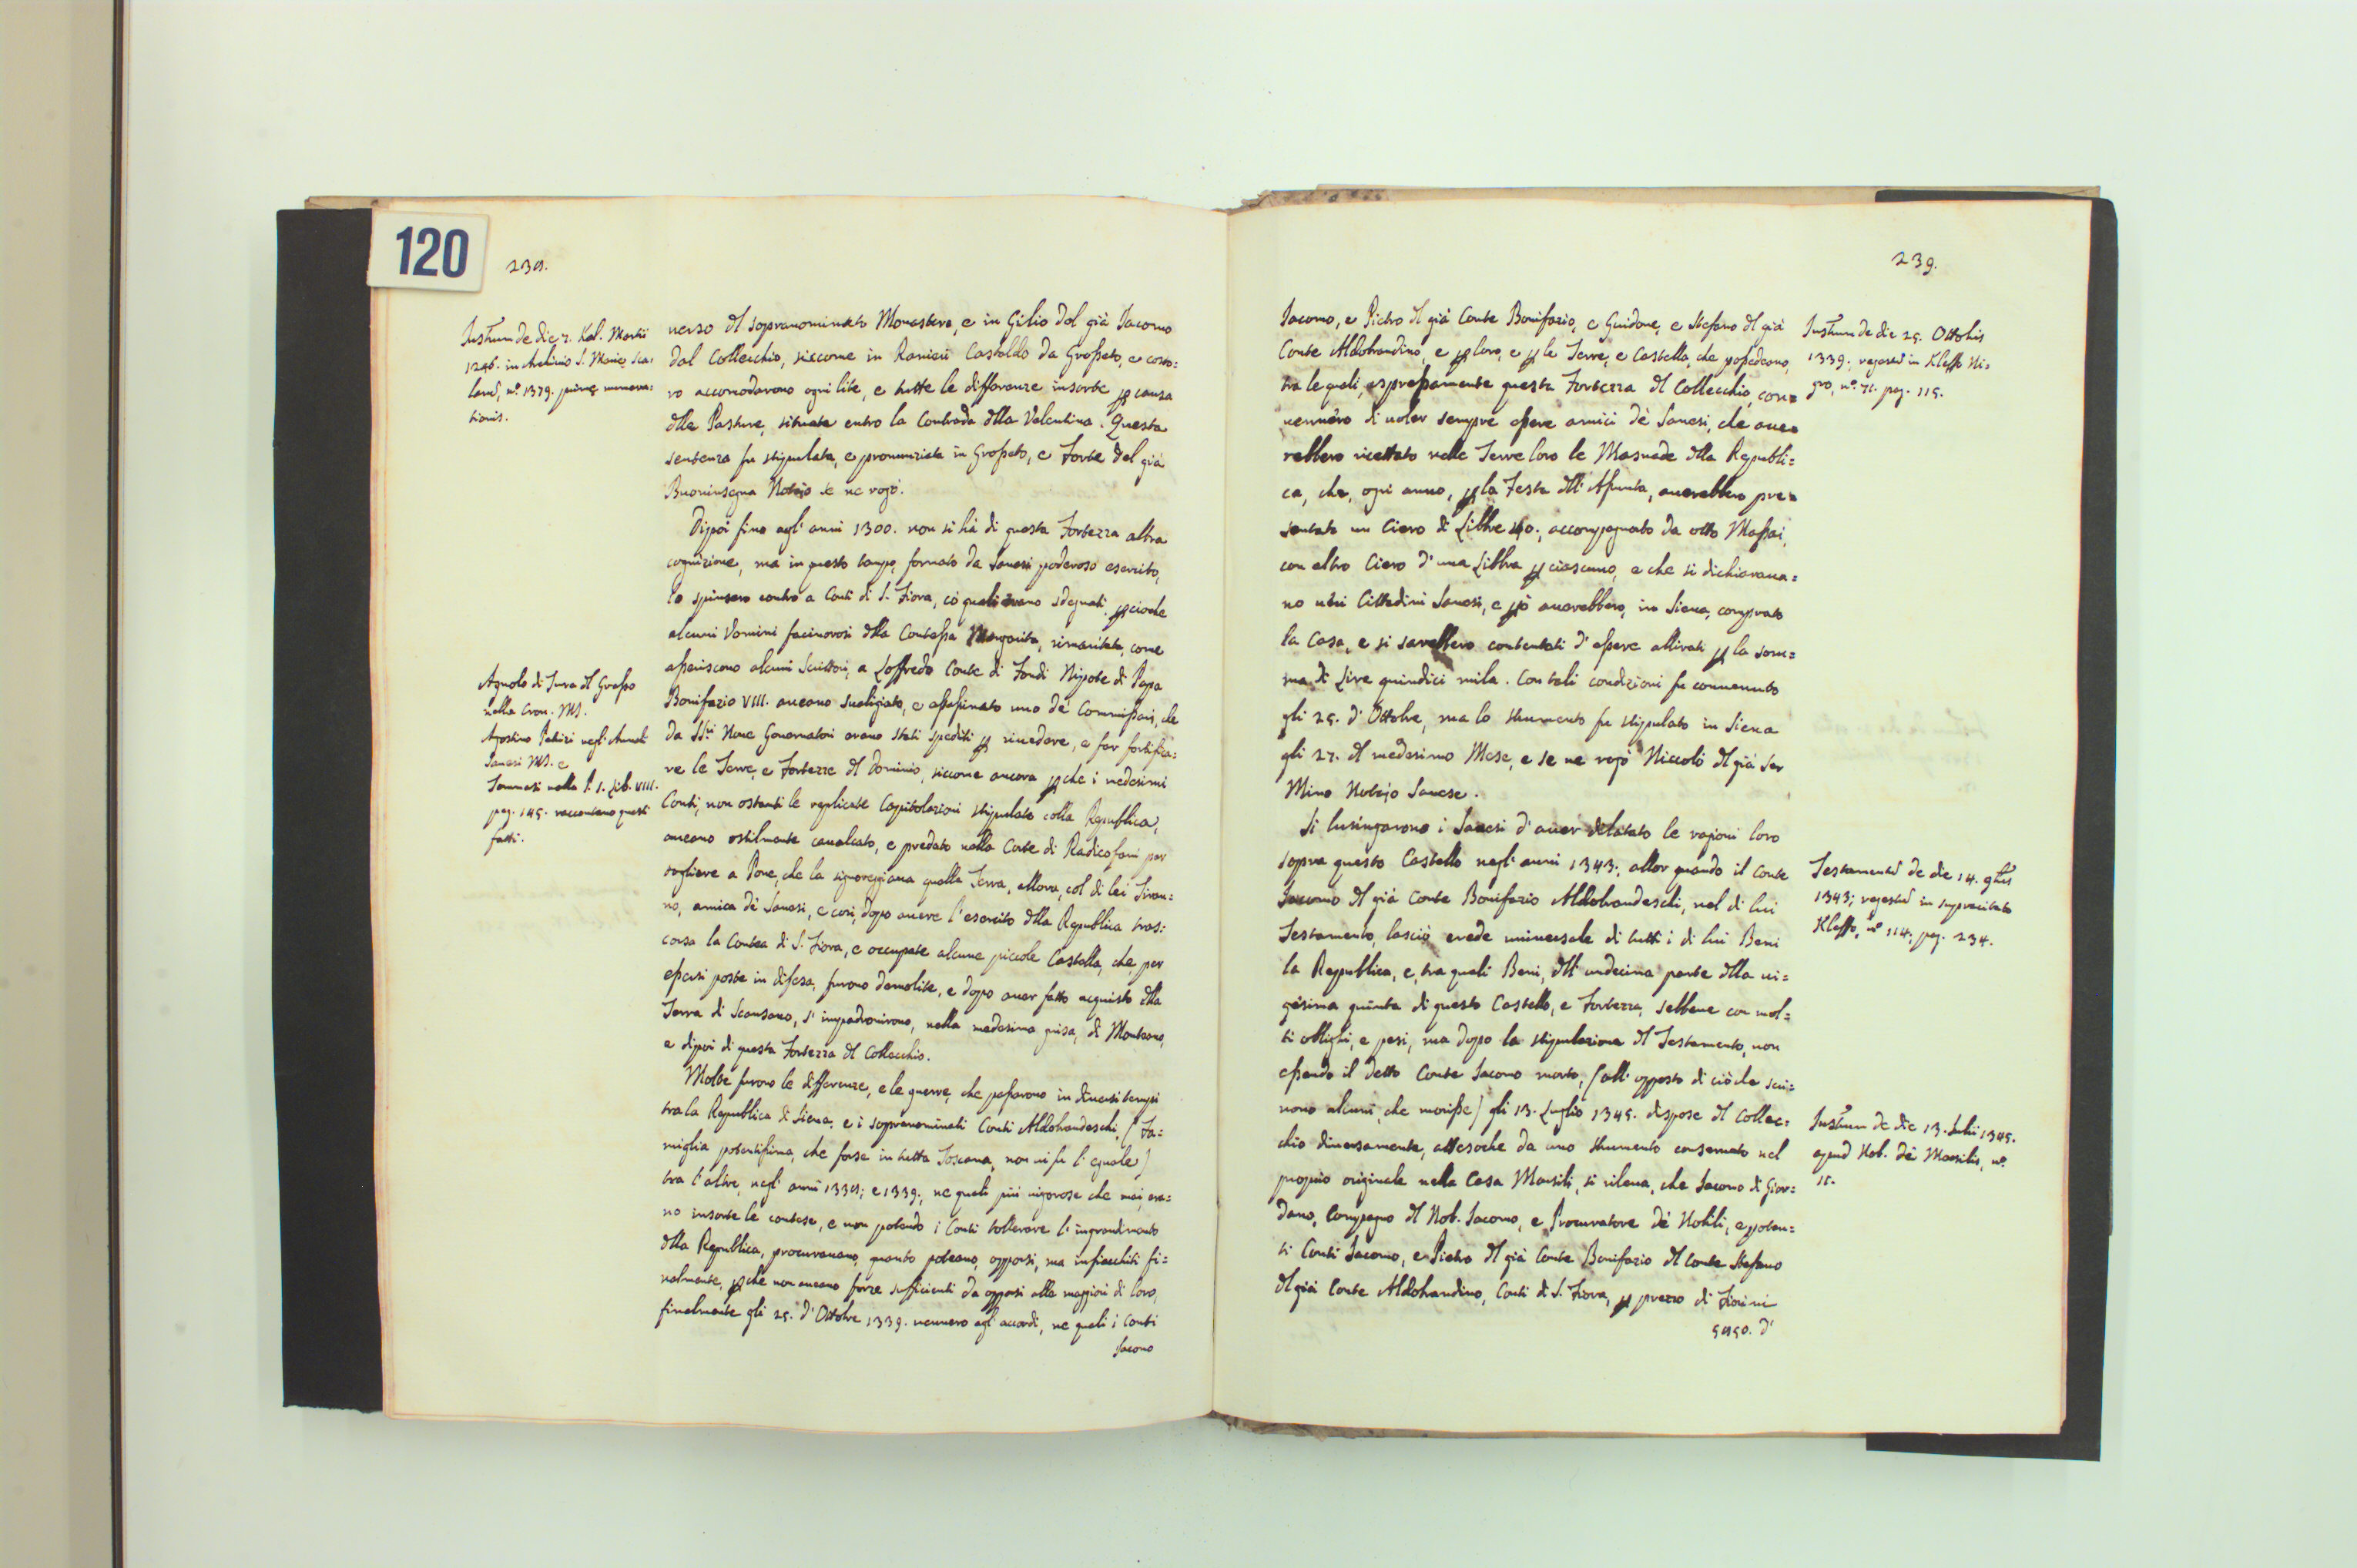 120
238.
Instrum de die 7. Kal. Martii
1296. in Archivio S. Marię Sca-
larū, n.º 1379. primę numera-
tionis.
nerso dl sopranominato Monastero, e in Gilio del già Iacomo
dal Collecchio, siccome in Ranieri Castaldo da Grosseto, e costo-
ro accomodarono ogni lite, e tutte le differenze insorte p causa
dlle Pasture, situate entro la Contrada dlla Valentina. Questa
sentenza fu stipulata, e pronunziata in Grosseto, e Forte del già
Buoninsegna Notaio se ne rogò.
Dipoi fino agl' anni 1300. non si hà di questa Fortezza altra
cognizione, ma in questo tempo, formato da Sanesi poderoso esercito,
lo spinsero contro a Conti di S. Fiora, có quali erano sdegnati, p cioche
alcuni Uomini facinorosi dlla Contessa Margarita, rimaritata, come
asseriscono alcuni Scrittori, a Loffredo Conte di Fondi Nipote di Papa
Bonifazio VIII. aueano sualigiato, e assassinato uno de' Commissari, che
da SS.ri Noue Gouernatori erano stati spediti p riuedere, e far fortifica=
re le Terre, e Fortezze dl Dominio, siccome ancora p che i medesimi
Conti, non ostanti le replicate Capitolazioni stipulate colla Republica,
aueano ostilmente caualcato, e predato nella Corte di Radicofani per
togliere a Pone, che la signoreggiaua quella Terra, allora, col di lei Tiran=
no, amica dè Sanesi, e così, dopo auere l'esercito dlla Republica tras=
corsa la Contea di S. Fiora, e occupate alcune piccole Castella, che, per
essersi poste in difesa, furono demolite, e dopo auer fatto acquisto dlla
Terra di Scansano, s' impadronirono, nella medesima guisa, di Monteano,
e dipoi di questa Fortezza dl Collecchio.
Agnolo di Tura dl Grasso
nella Cron. MS.
Agostino Patrizi negl' Annali
Sanesi MS. e
Tommasi nella P. 1. Lib. VIII.
pag. 145. raccontano questi
fatti.
Molte furono le differenze, e le guerre, che passarono in diuersi tempi
tra la Republica di Siena, e i sopranominati Conti Aldobrandeschi, (Fa=
miglia potentissima, che forse in tutta Toscana, non ui fu l' eguale)
tra l'altre, negl' anni 1338; e 1339; ne quali più uigorose che mai, era=
no insorte le contese, e non potendo i Conti tollerare l' ingrandimento
dlla Republica, procurauano, quanto poteano, opporsi, ma infiacchiti fi=
nalmente, p che non aueano forze sufficienti da opporsi alle maggiori di loro,
finalmente gli 25. d' Ottobre 1339. uennero agl' accordi, ne quali i Conti
Iacomo
239.
Iacomo, e Pietro dl già Conte Bonifazio, e Guidone, e Stefano dl già
Conte Aldobrandino, e p loro, e p le Terre, e Castella, che possedeano,
tra le quali, espressamente questa Fortezza dl Collecchio, con=
uennero di uoler sempre essere amici dè Sanesi, che aue=
rebbero ricettato nelle Terre loro le Masnade dlla Republi=
ca, che, ogni anno, p la Festa dll' Assunta, auerebbero pre=
sentato un Ciero di Libbre 40., accompagnato da otto Massai,
con altro Ciero d' una Libbra p ciascuno, e che si dichiaraua=
no ueri Cittadini Sanesi, e p ò auerebbero, in Siena, comprato
la Casa, e si sarebbero contentati d' essere allirati p la som=
ma di Lire quindici mila. Con tali condizioni fu conuenuto
gli 25. d' Ottobre, ma lo strumento fu stipulato in Siena
gli 27. dl medesimo Mese, e se ne rogò Niccolò dl già Ser
Mino Notajo Sanese.
Instrum de die 25. Ottobris
1339; regestū in Kleffo Ni=
gro, n.º 71. pag. 115.
Si lusingarono i Sanesi d' auer dilatato le ragioni loro
sopra questo Castello negl' anni 1343; allor quando il Conte
Iacomo dl già Conte Bonifazio Aldobrandeschi, nel di lui
Testamento, lasciò erede uniuersale di tutti i di lui Beni
la Republica, e, tra quali Beni, dll' undecima parte dlla ui=
gesima quinta di questo Castello, e Fortezza, sebbene con mol=
ti obblighi, e pesi, ma dopo la stipulazione dl Testamento, non
essendo il detto Conte Iacomo morto, (all' opposto di ciò che scri=
uono alcuni, che morisse) gli 13. Luglio 1345. dispose dl Collec=
chio diuersamente, attesoche da uno strumento conseruato nel
proprio originale nella Casa Marsili, si rileua, che Iacomo di Gior=
dano, Compagno dl Nob. Iacomo, e Procuratore dè Nobili, e poten=
ti Conti Iacomo, e Pietro dl già Conte Bonifazio dl Conte Stefano
dl già Conte Aldobrandino, Conti di S. Fiora, p prezzo di Fiorini
5850. d'
Testamentū de die 14. 9bris
1343; regestū in supracitato
Kleffo, n.º 114; pag. 234.
Instrum de die 13. Iulii 1345.
apud Nob. dè Marsilis, n.º
15.